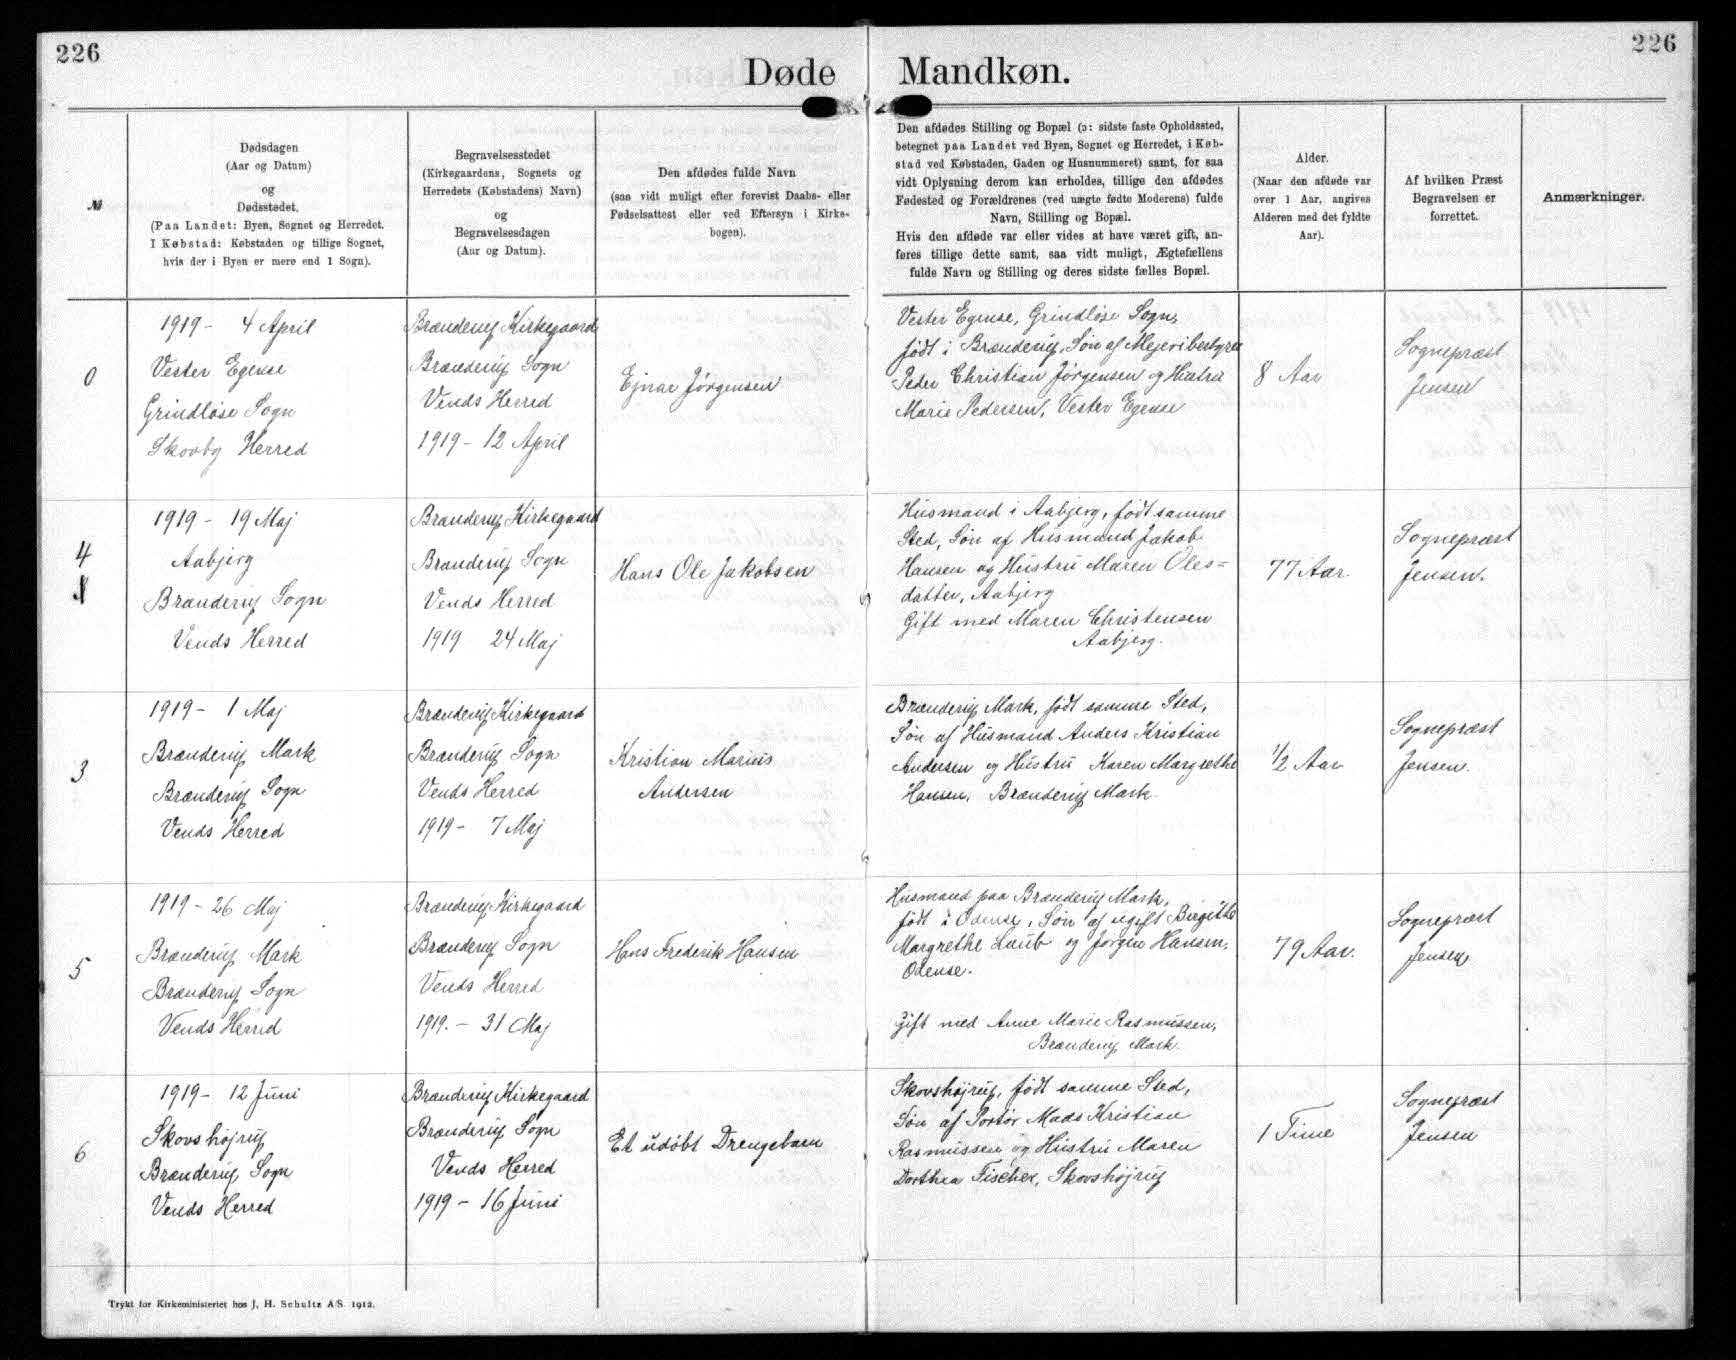 226
226
Døde Mandkøn.
№
Dødsdagen
(Aar og Datum)
og
Dødsstedet.
(Paa Landet: Byen, Sognet og Herredet.
I Købstad: Købstaden og tillige Sognet,
hvis der i Byen er mere end 1 Sogn).
Begravelsesstedet
(Kirkegaardens, Sognets og
Herredets (Købstadens) Navn)
og
Begravelsesdagen
(Aar og Datum).
Den afdødes fulde Navn
(saa vidt muligt efter forevist Daabs- eller
Fødselsattest eller ved Eftersyn i Kirke-
bogen).
Den afdødes Stilling og Bopæl (ɔ: sidste faste Opholdssted,
betegnet paa Landet ved Byen, Sognet og Herredet, i Køb-
stad ved Købstaden, Gaden og Husnummeret) samt, for saa
vidt Oplysning derom kan erholdes, tillige den afdødes
Fødested og Forældrenes (ved uægte fødte Moderens) fulde
Navn, Stilling og Bopæl.
Hvis den afdøde var eller vides at have været gift, an-
føres tillige dette samt, saa vidt muligt, Ægtefællens
fulde Navn og Stilling og deres sidste fælles Bopæl.
Alder.
(Naar den afdøde var
over 1 Aar, angives
Alderen med det fyldte
Aar).
Af hvilken Præst
Begravelsen er
forrettet.
Anmærkninger.
0
1919 - 4 April
Vester Egense
Grindløse Sogn
Skovby Herred
Brænderup Kirkegaard
Brænderup Sogn
Vends Herred
1919 - 12 April
Ejnar Jørgensen
Vester Egense, Grindløse Sogn,
født i Brænderup, Søn af Mejeribestyrer
Peder Christian Jørgensen og Hustru
Marie Pedersen, Vester Egense
8 Aar
Sognepræst
Jensen
4
1919 - 19 Maj
Aabjerg
Brænderup Sogn
Vends Herred
Brænderup Kirkegaard
Brænderup Sogn
Vends Herred
1919 24 Maj
Hans Ole Jakobsen
Husmand i Aabjerg, født samme
Sted, Søn af Husmand Jakob
Hansen og Hustru Maren Oles=
datter, Aabjerg
Gift med Maren Christensen
Aabjerg.
77 Aar.
Sognepræst
Jensen.
3
1919 - 1 Maj
Brænderup Mark
Brænderup Sogn
Vends Herred
Brænderup Kirkegaard
Brænderup Sogn
Vends Herred
1919 - 7 Maj
Kristian Marius
Andersen
Brænderup Mark, født samme Sted,
Søn af Husmand Anders Kristian
Andersen og Hustru Karen Margrethe
Hansen, Brænderup Mark.
1/2 Aar
Sognepræst
Jensen.
5
1919 - 26 Maj
Brænderup Mark
Brænderup Sogn
Vends Herred
Brænderup Kirkegaard
Brænderup Sogn
Vends Herred
1919. - 31 Maj
Hans Frederik Hansen
Husmand paa Brænderup Mark,
født i Odense, Søn af ugift Birgitte
Margrethe Laub og Jørgen Hansen,
Odense.
Gift med Anne Marie Rasmussen,
Brænderup Mark.
79 Aar.
Sognepræst
Jensen
6
1919 - 12 Juni
Skovshøjrup
Brænderup Sogn
Vends Herred
Brænderup Kirkegaard
Brænderup Sogn
Vends Herred
1919 - 16 Juni
Et udøbt Drengebarn
Skovshøjrup, født samme Sted,
Søn af Portør Mads Kristian
Rasmussen og Hustru Maren
Dorthea Fischer, Skovshøjrup
1 Time
Sognepræst
Jensen
Trykt for Kirkeministeriet hos J. H. Schultz A/S. 1912.